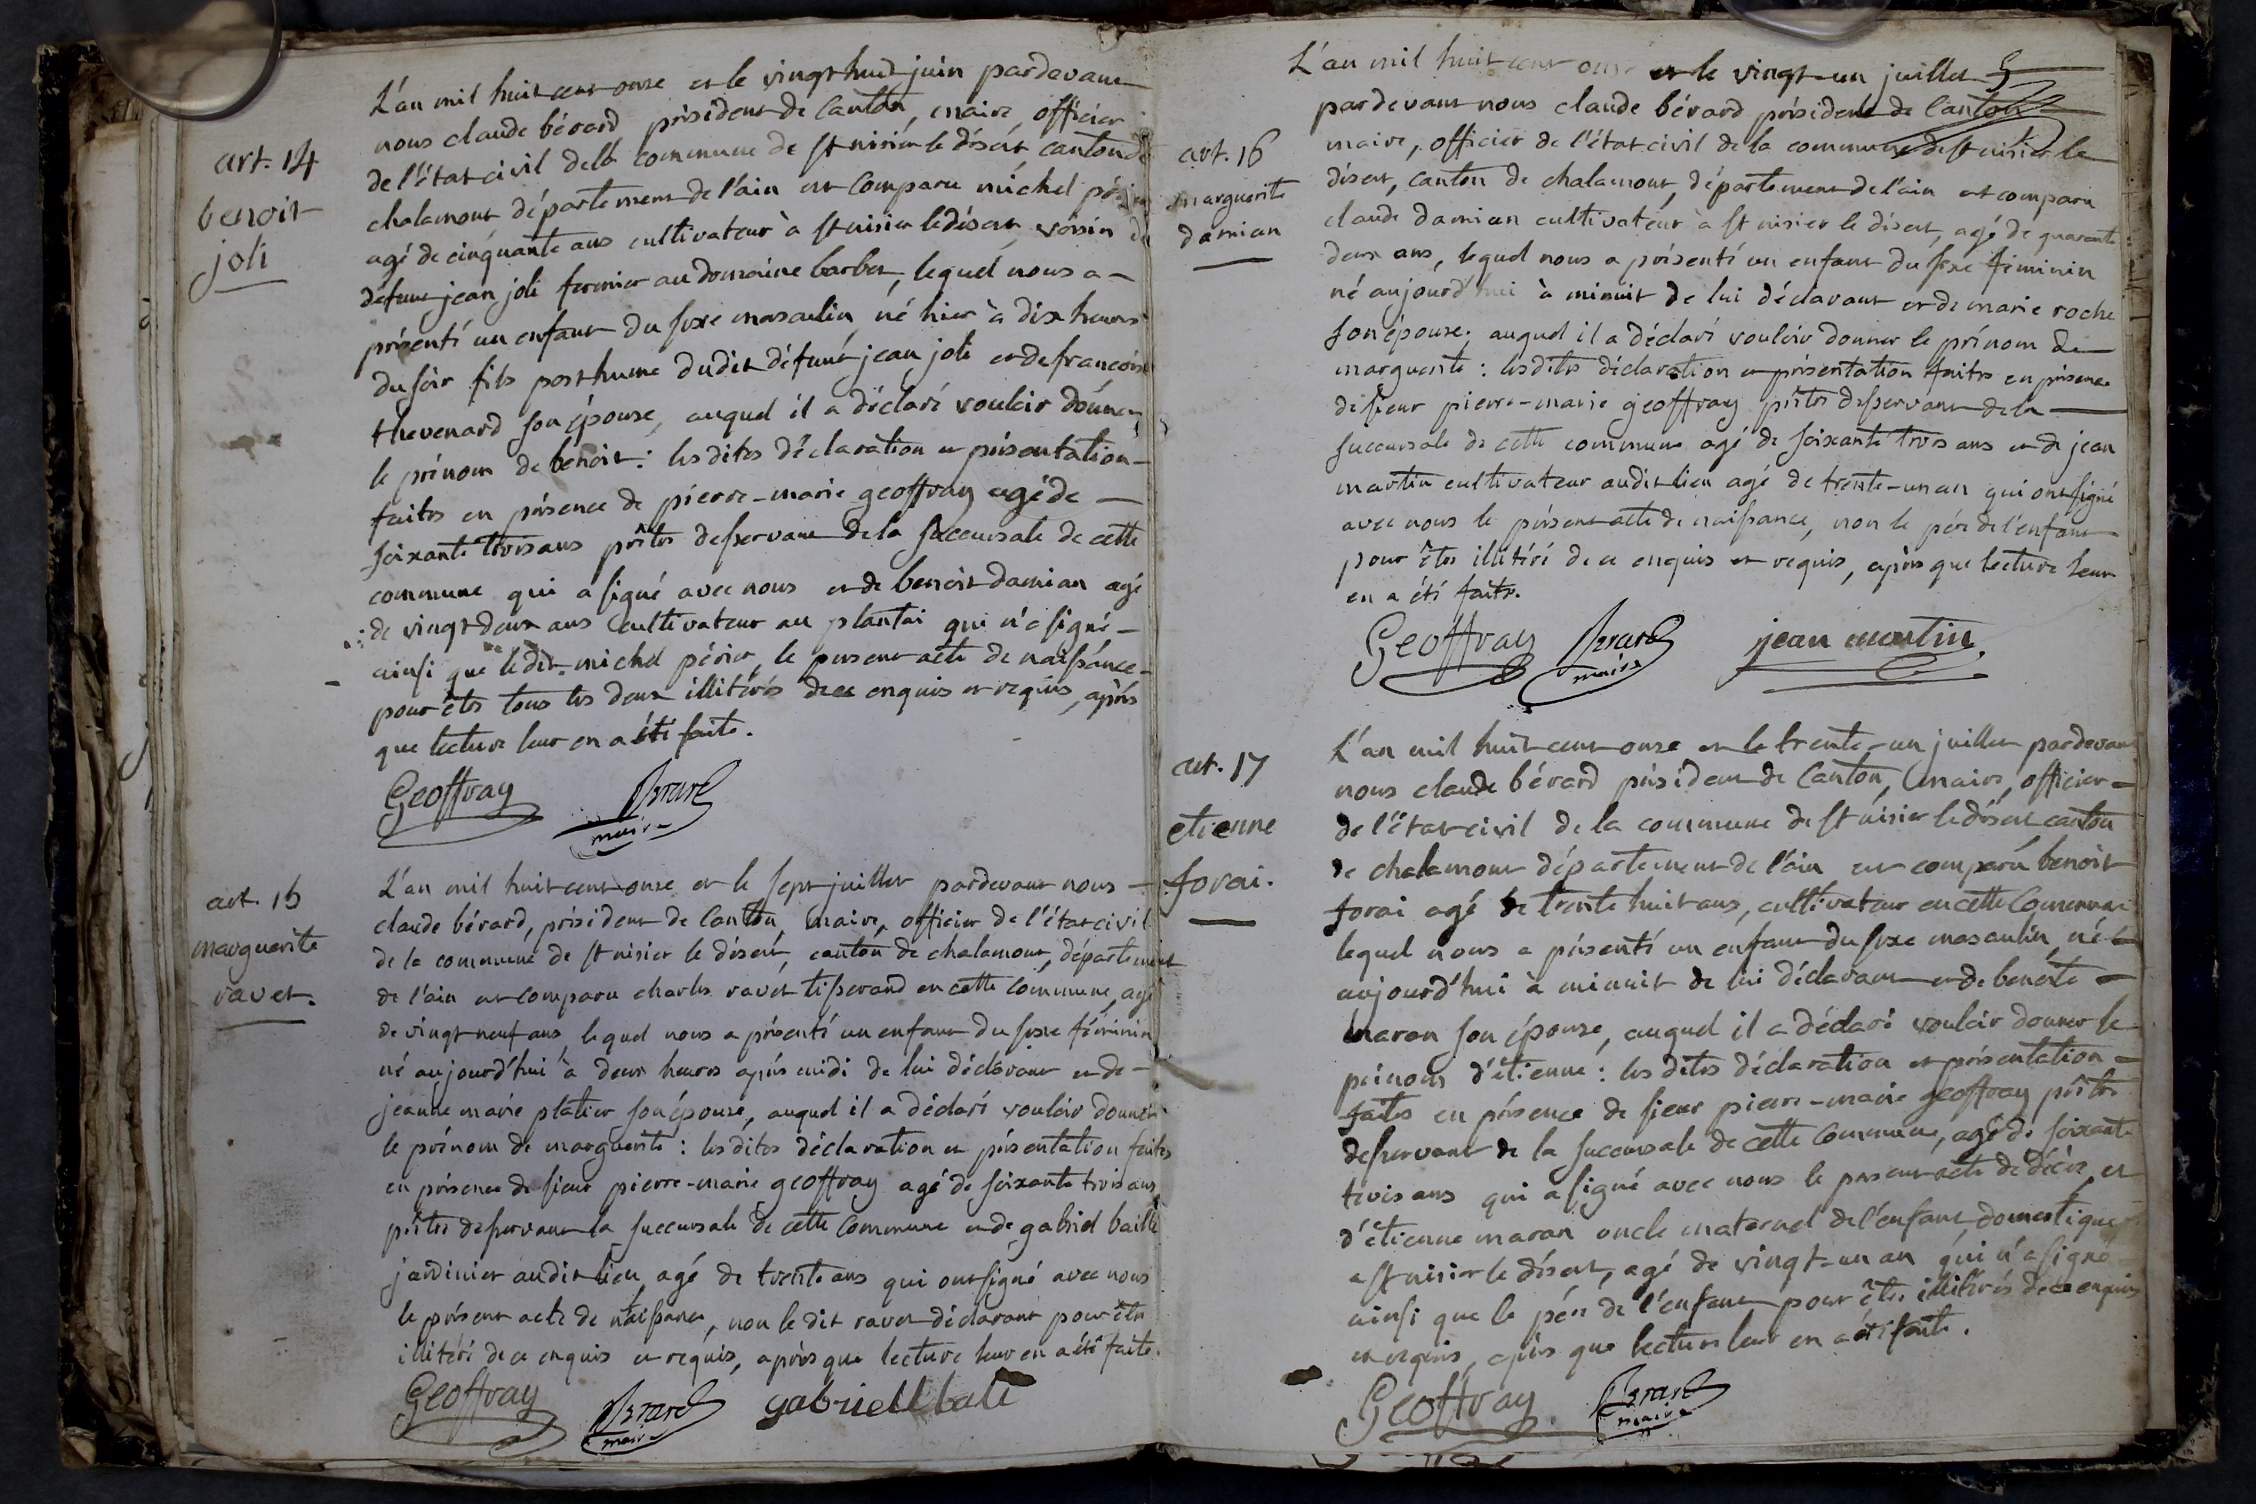 art. 14
benoit
joli
L'an mil huit cent onze et le vingt huit juin pardevant
nous claude bérard, président de canton, maire, officier
de l'état civil de la commune de st nisier le désert canton de
chalamont département de l'ain est comparu michel périer
agé de cinquante ans cultivateur à st nisier le désert, voisin de
défunt jean joli fermier au domaine barbet, lequel nous a
présenté un enfant du sexe masculin né hier à dix heures
du soir fils posthume dudit défunt jean joli et de françoise
thevenard son épouse, auquel il a déclaré vouloir donner
le prénom de benoit : les dites déclaration et présentation
faites en présence de pierre-marie geoffray agé de
soixante trois ans prêtre desservant de la succursale de cette
commune qui a signé avec nous et de benoit damian agé
de vingt deux ans cultivateur au plantai qui n'a signé
ainsi que ledit michel périer, le présent acte de naissance
pour être tous les deux illitérés de ce enquis et requis, après
que lecture leur en a été faite.
Geoffray Bérard
maire
art. 15
marguerite
ravet.
L'an mil huit cent onze et le sept juillet pardevant nous
claude bérard, président de canton, maire, officier de l'état civil
de la commune de st nisier le désert, canton de chalamont, département
de l'ain est comparu charles ravet tisserand en cette commune, agé
de vingt neuf ans, lequel nous a présenté un enfant du sexe féminin
né aujourd'hui à deux heures après midi de lui déclarant et de
jeanne marie platier son épouse, auquel il a déclaré vouloir donner
le prénom de marguerite : les dites déclaration et présentation faites
en présence de sieur pierre-marie geoffray agé de soixante trois ans
prêtre desservant la succursale de cette commune et de gabriel baille
jardinier audit lieu agé de trente ans qui ont signé avec nous
le présent acte de naissance, non le dit ravet déclarant pour être
illitéré de ce enquis et requis, après que lecture leur en a été faite.
Geoffray Bérard gabriell bali
maire
art. 16
marguerite
damian
L'an mil huit cent onze et le vingt-un juillet
pardevant nous claude bérard président de canton
maire, officier de l'état civil de la commune de st nisier le
désert, canton de chalamont, département de l'ain est comparu
claude damian cultivateur à st nisier le désert, agé de quarante
deux ans, lequel nous a présenté un enfant du sexe féminin
né aujourd'hui à minuit de lui déclarant et de marie roche
son épouse, auquel il a déclaré vouloir donner le prénom de
marguerite : les dites déclaration et présentation faites en présence
de sieur pierre-marie geoffray prêtre desservant de la
succursale de cette commune agé de soixante trois ans et de jean
martin cultivateur audit lieu agé de trente-un an qui ont signé
avec nous le présent acte de naissance, non le père de l'enfant
pour être illitéré de ce enquis et requis, après que lecture leur
en a été faite.
Geoffray Bérard jean martin
maire
art. 17
etienne
forai.
L'an mil huit cent onze et le trente-un juillet pardevant
nous claude bérard président de canton, maire, officier
de l'état civil de la commune de st nisier le désert canton
de chalamont département de l'ain est comparu benoit
forai agé de trente huit ans, cultivateur en cette commune
lequel nous a présenté un enfant du sexe masculin né
aujourd'hui à minuit de lui déclarant et de benoite
maron son épouse, auquel il a déclaré vouloir donner le
prénom d'étienne : les dites déclaration et présentation
faites en présence de sieur pierre-marie geoffray prêtre
desservant de la succursale de cette commune, agé de soixante
trois ans qui a signé avec nous le présent acte de décès, et
d'étienne maron oncle maternel de l'enfant, domestique
a st nisier le désert, agé de vingt-un an qui n'a signé
ainsi que le père de l'enfant pour être illitérés de ce enquis
et requis, après que lecture leur en a été faite.
Geoffray. Bérard
maire